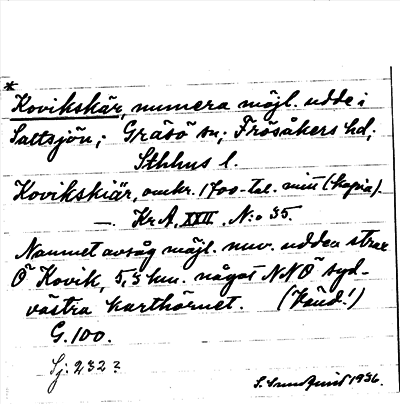 *
Kovikskär, numera möjl. udde i
Saltsjön; Gräsö sn; Frösåkers hd;
Sthlms l.
Kovikskiär, omkr. 1700-tal. mitt (kopia).
— KrA, XXII, N:o 35.
Namnet avsåg möjl. nuv. udden strax
Ö Kovik, 5,5 km. något NNÖ syd-
västra karthörnet. (Känd!)
G. 100.
Sj: 232?
S. Sundqvist 1936.